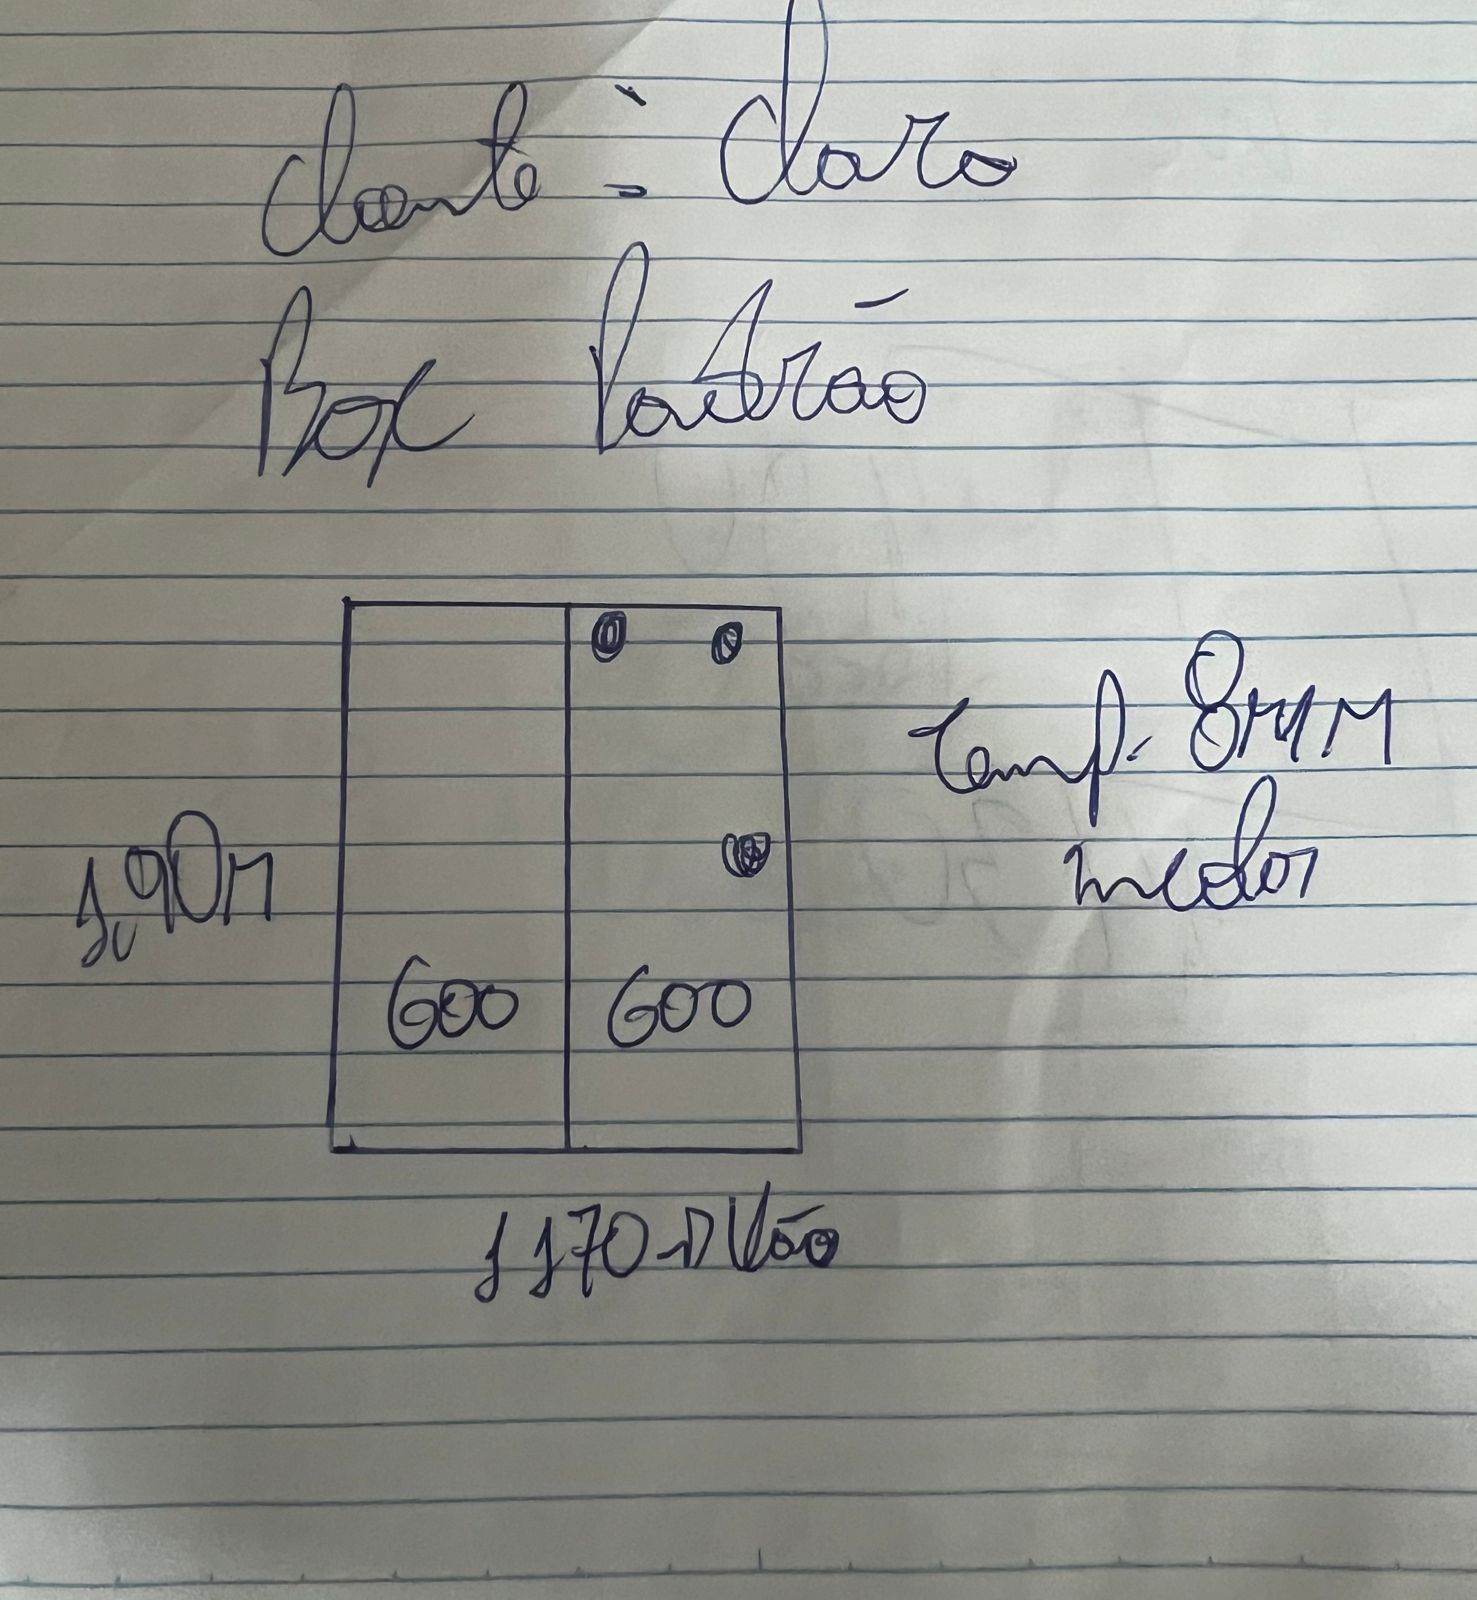 cliente: Clara
Box Padrão
Temp. 8MM
incolor
1,90M
600 600
1170 → Vão